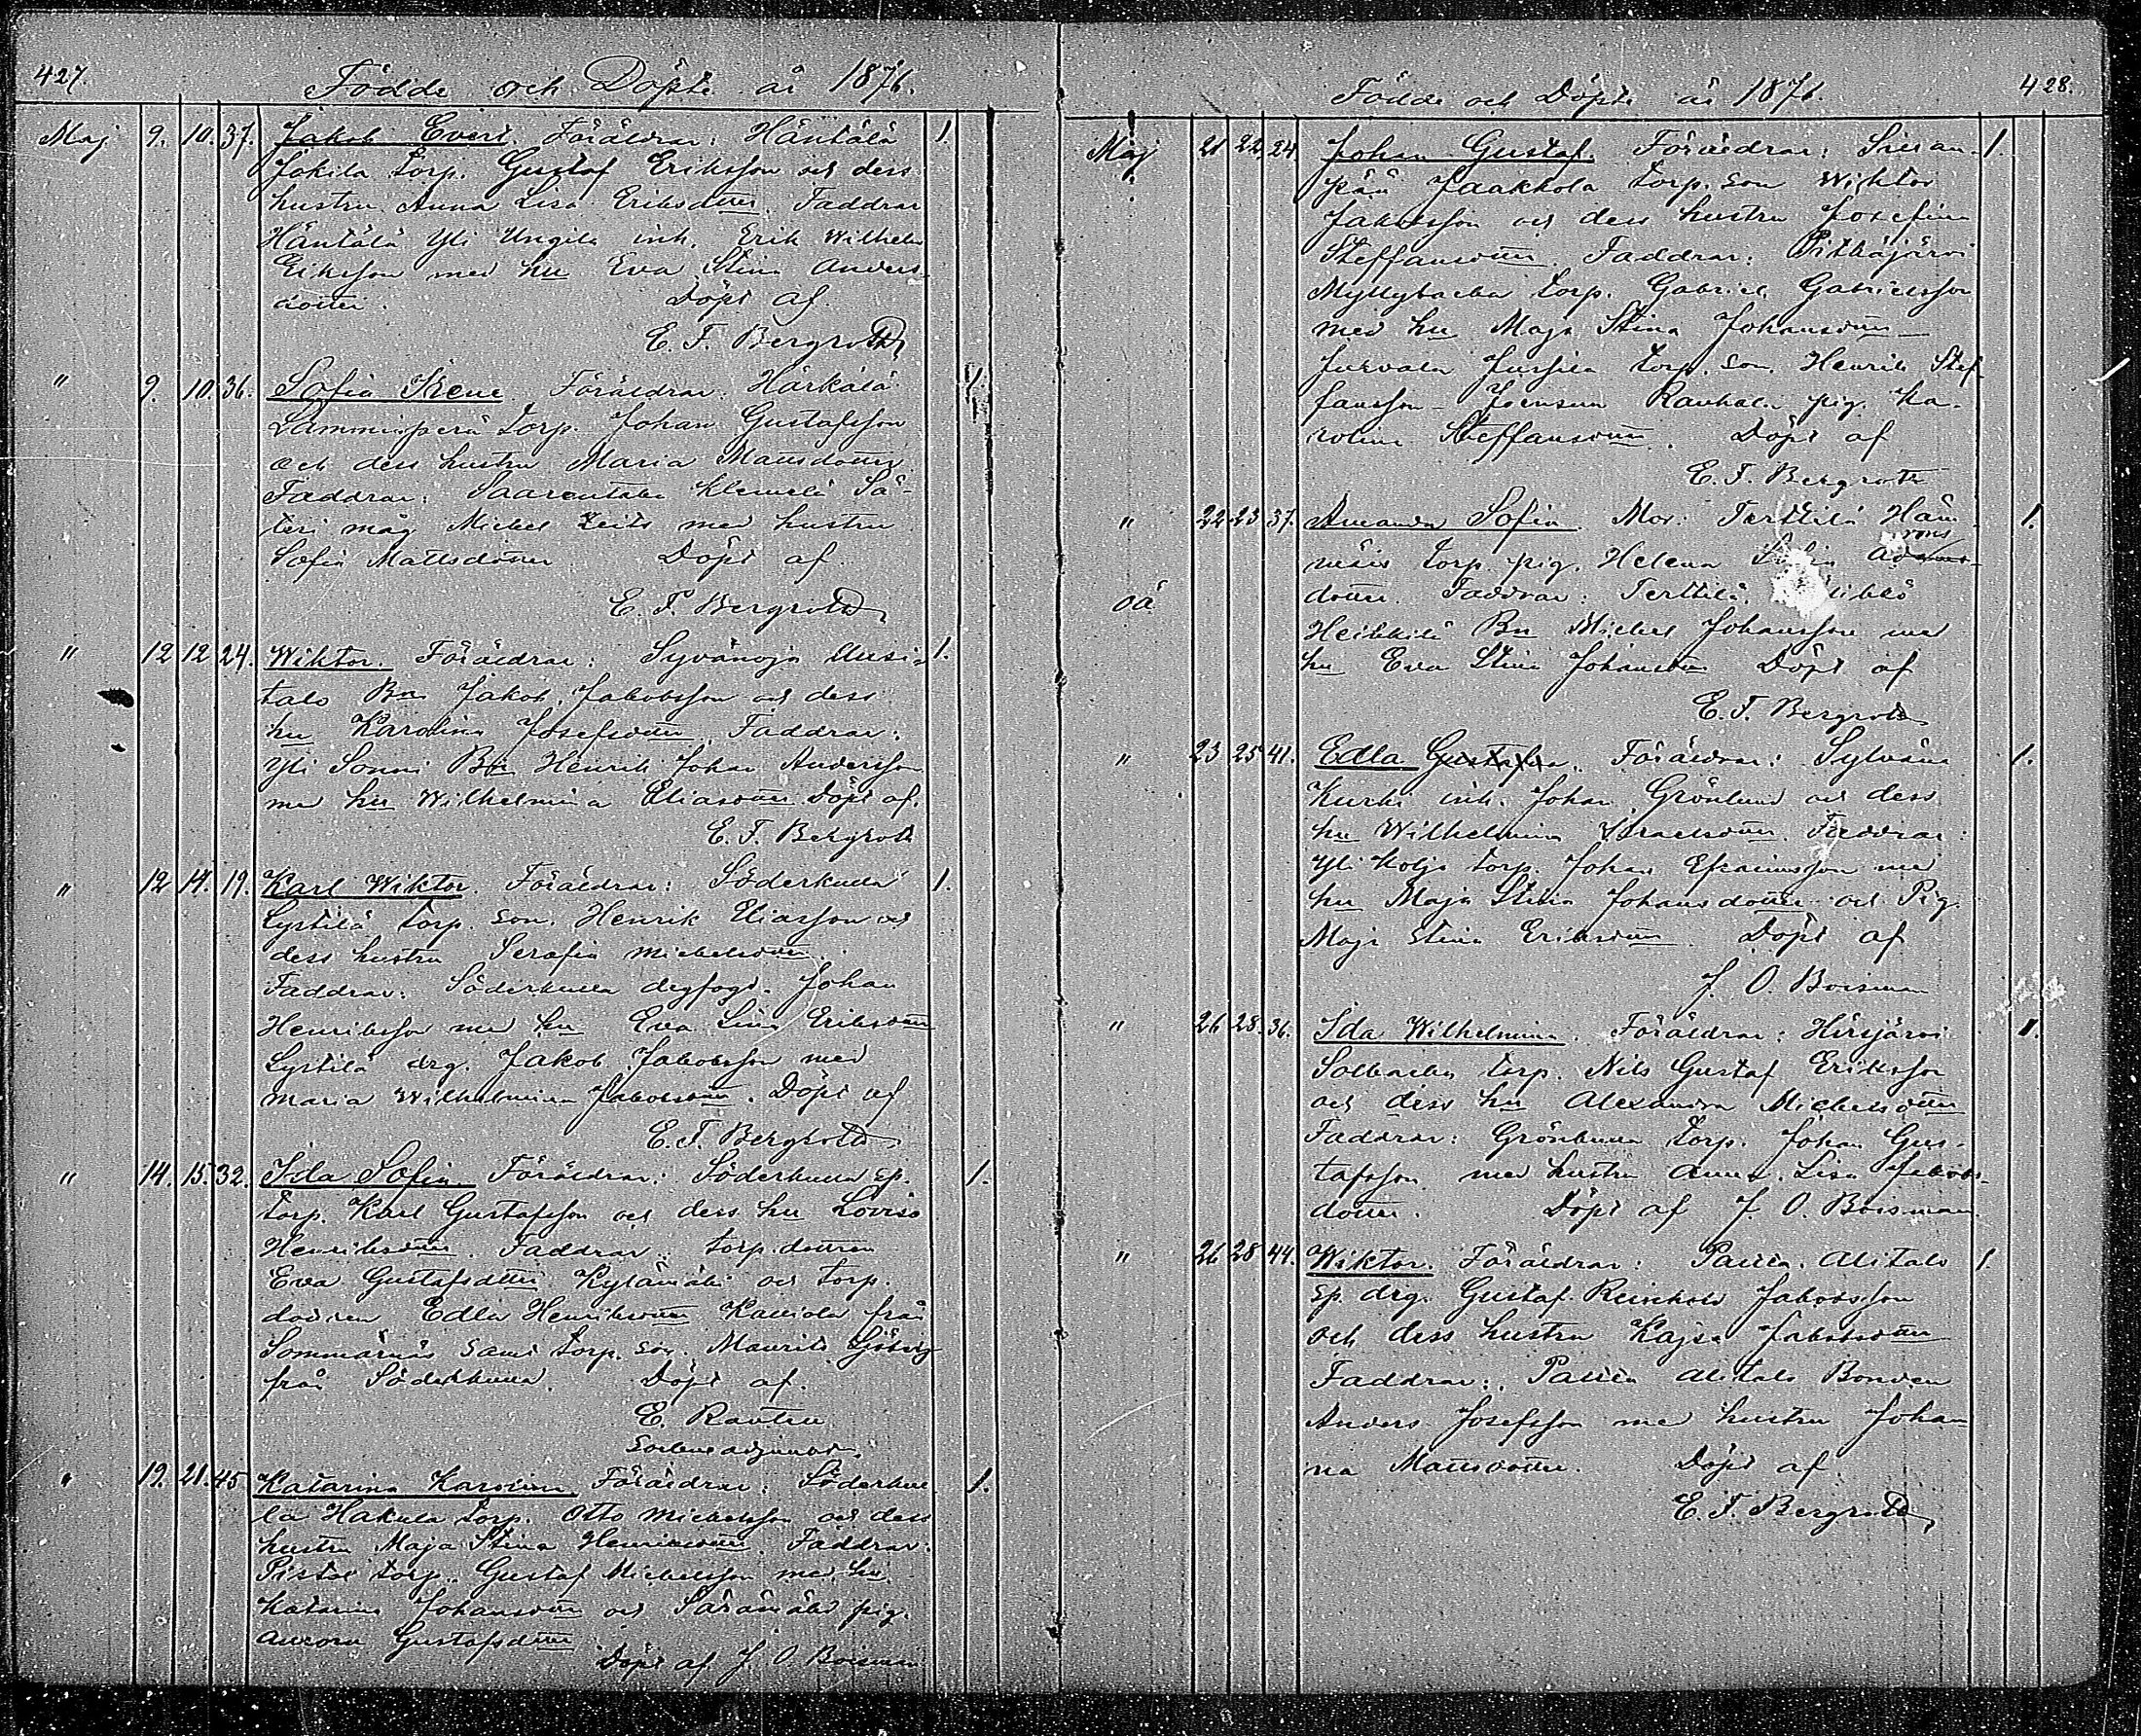 427.
Födde och Döpte år 1876.
Maj 9. 10. 37. Jakob Evert. Föräldrar: Häntälä 1.
Jokila torp. Gustaf Eriksson och dess
hustru Anna Lisa Eriksdotter. Faddrar
Häntälä Yli Ungila inh. Erik Wilhelm
Eriksson med hu Eva Stina Anders-
dotter. Döpt af
E. F. Bergroth
" 9. 10. 36. Sofia Irene. Föräldrar: Härkälä 1.
Lamminperä torp. Johan Gustafsson
och dess hustru Maria Mattsdotter.
Faddrar: Saarentaka Klemelä Sä-
teri måg Michel Zeits med hustru
Sofia Mattsdotter Döpt af
E. F. Bergroth
" 12 12 24. Wiktor. Föräldrar: Syvänoja Uusi- 1.
talo Bn Jakob Jakobsson och dess
hu Karolina Josefsdotter. Faddrar:
Yli Sonni Bn Henrik Johan Andersson
med hu Wilhelmina Eliasdotter Döpt af.
E. F. Bergroth
" 12 14. 19. Karl Wiktor. Föräldrar: Söderkulla 1.
Lystilä torp. son. Henrik Eliasson och
dess hustru Serafia Michelsdotter.
Faddrar: Söderkulla degfogd. Johan
Henriksson med hu Eva Lina Eriksdotter
Lystilä drg. Jakob Jakobsson med
Maria Wilhelmina Jakobsdotter. Döpt af
E. F. Bergroth
" 14. 15. 32. Ida Sofia. Föräldrar: Söderkulla Sp. 1.
torp. Karl Gustafsson och dess hu Lovisa
Henriksdotter. Faddrar: torp. dottren
Eva Gustafsdotter Kylämäki och torp.
dottren Edla Henriksdotter Kalliola från
Sommarnäs samt torp. son. Maurits
från Söderkulla. Döpt af.
E. Rautell
Sockne adjunct.
" 19. 21. 45. Katarina Karolina. Föräldrar: Söderkul 1.
la Hakula torp. Otto Michelsson och dess
hustru Maja Stina Henriksdotter. Faddrar:
Pistol torp. Gustaf Michelsson med hu
Katarina Johansdotter och Saramäki pig.
Aurora Gustafsdotter
Döpt af J. O. Boisman
428.
Födde och Döpte år 1876.
Maj 21 22. 24. Johan Gustaf. Föräldrar: Sieran- 1.
pää Jaakkola torp. son Wicktor
Jakobsson och dess hustru Josefina
Steffansdotter. Faddrar: Pitkäjärvi
Myllybacka torp. Gabriel Gabrielsson
med hu Maja Stina Johansdotter –
Jurvala Jussila torp. son. Henrik Stef-
fansson – Joensuu Rauhala pig. Ka-
rolina Steffansdotter. Döpt af
E. F. Bergroth
" 22 23. 37. Amanda Sofia. Mor: Terttilä Häm- 1.
näis torp. pig. Helena Adams-
oä dotter. Faddrar: Terttilä
Heikkilä Bn Michel Johansson med
hu Eva Stina Johansdotter Döpt af
E. F. Bergroth
" 23 25 41. Edla Gustafva. Föräldrar: Sylväne 1.
Kurki inh. Johan Grönlund och dess
hu Wilhelmina Israelsdotter. Faddrar:
Yli Kolja torp. Johan Efraimsson med
hu Maja Stina Johansdotter och Pig.
Maja Stina Eriksdotter. Döpt af
J. O. Boisman
" 26 28. 36. Ida Wilhelmina. Föräldrar: Hirsjärvi 1.
Solbacka torp. Nils Gustaf Eriksson
och dess hu Alexandra Michelsdotter
Faddrar: Grönkulla torp. Johan Gus-
tafsson med hustru Anna Lisa Jakobs-
dotter. Döpt af J. O. Boisman.
" 26 28 44. Wiktor. Föräldrar: Palila Alitalo 1.
Sp. drg. Gustaf Reinhold Jakobsson
och dess hustru Kajsa Jakobsdotter
Faddrar: Palila Alitalo Bonden
Anders Josefsson med hustru Johan
na Mattsdotter. Döpt af
E. F. Bergroth